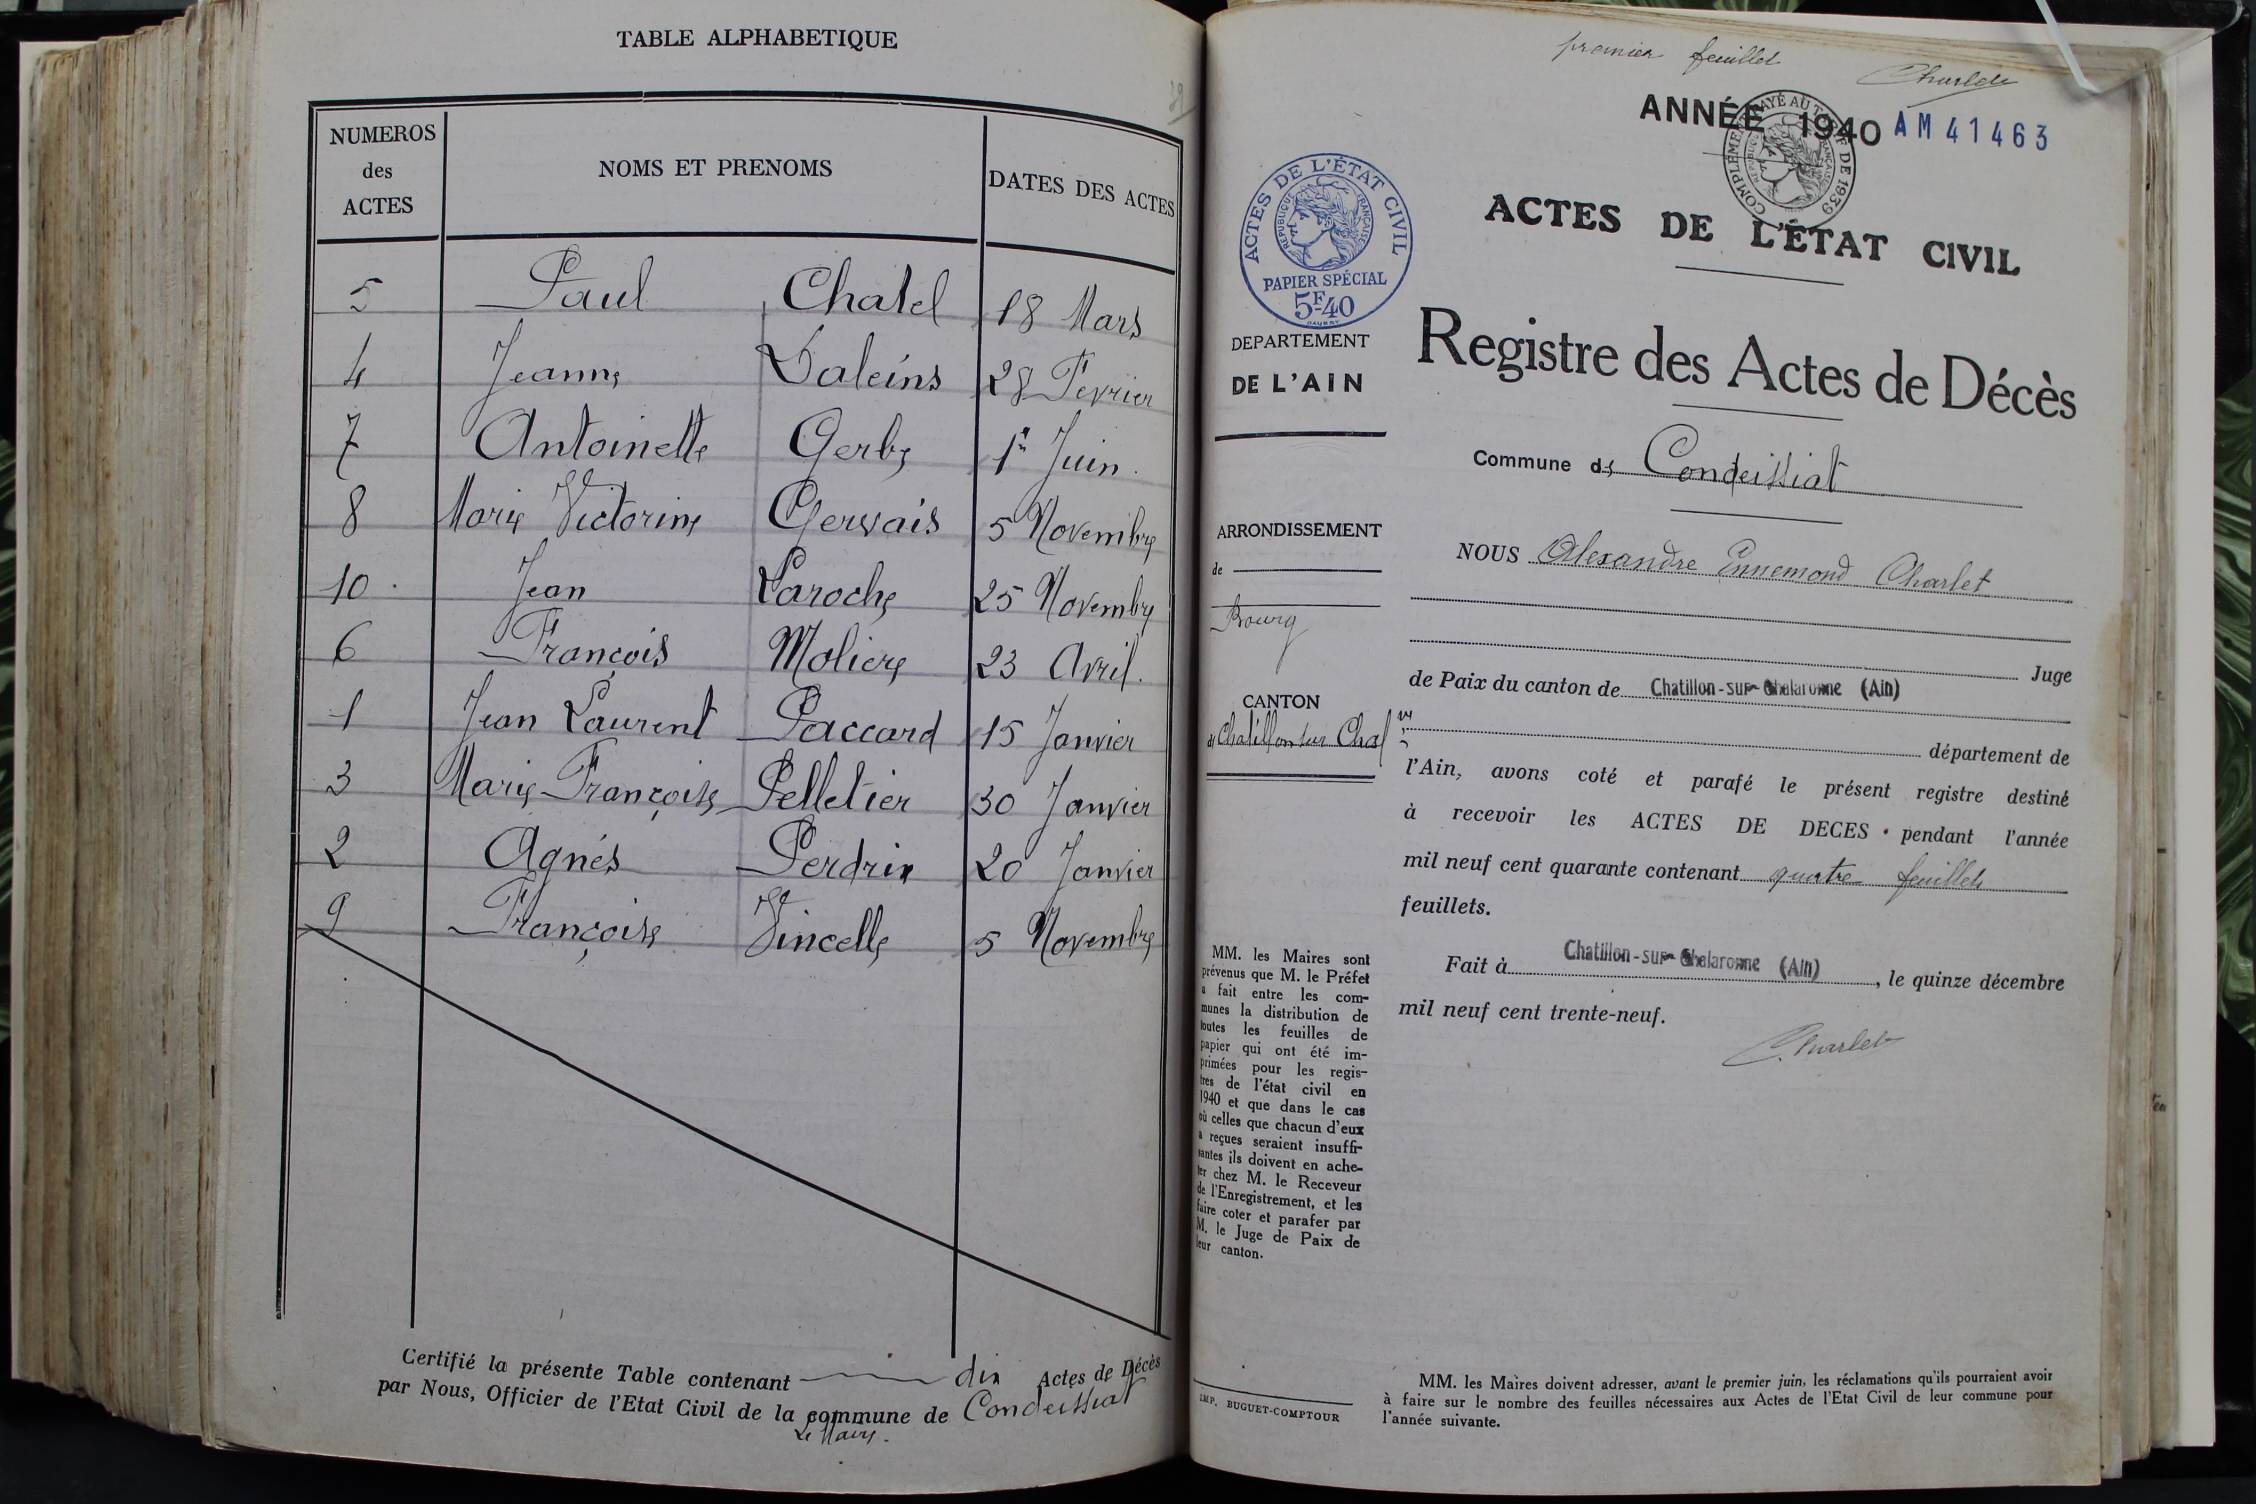 TABLE ALPHABETIQUE
NUMEROS des ACTES NOMS ET PRENOMS DATES DES ACTES
5 Paul Chatel 18 Mars
4 Jeanne Daleins 28 Fevrier
7 Antoinette Gerbe 1er Juin.
8 Marie Victorine Gervais 5 Novembre
10. Jean Laroche 25 Novembre
6 François Moliere 23 Avril.
1 Jean Laurent Paccard 15 Janvier
3 Marie Françoise Pelletier 30 Janvier
2 Agnés Perdrix 20 Janvier
9 Françoise Vincelle 5 Novembre
Certifié la présente Table contenant dix Actes de Décès
par Nous, Officier de l'Etat Civil de la commune de Condeissiat
Le Maire.
premier feuillet
Charlet
ANNÉE 1940 AM 41463
COMPLÉMENT PAYÉ AU TARIF DE 1939
ACTES DE L'ÉTAT CIVIL
RÉPUBLIQUE FRANÇAISE
PAPIER SPÉCIAL
5F40
ACTES DE L'ÉTAT CIVIL
Registre des Actes de Décès
Commune de Condeissiat
DEPARTEMENT
DE L'AIN
ARRONDISSEMENT
de
Bourg
CANTON
de Chatillon sur Chalne
NOUS Alexandre Ennemond Charlet
Juge
de Paix du canton de Chatillon-sur-Chalaronne (Ain)
département de
l'Ain, avons coté et parafé le présent registre destiné
à recevoir les ACTES DE DECES pendant l'année
mil neuf cent quarante contenant quatre feuillets
feuillets.
Fait à Chatillon-sur-Chalaronne (Ain), le quinze décembre
mil neuf cent trente-neuf.
Charlet
MM. les Maires sont
prévenus que M. le Préfet
a fait entre les com-
munes la distribution de
toutes les feuilles de
papier qui ont été im-
primées pour les regis-
tres de l'état civil en
1940 et que dans le cas
où celles que chacun d'eux
a reçues seraient insuffi-
santes ils doivent en ache-
ter chez M. le Receveur
de l'Enregistrement, et les
faire coter et parafer par
M. le Juge de Paix de
leur canton.
IMP. BUGUET-COMPTOUR
MM. les Maires doivent adresser, avant le premier juin, les réclamations qu'ils pourraient avoir
à faire sur le nombre des feuilles nécessaires aux Actes de l'Etat Civil de leur commune pour
l'année suivante.